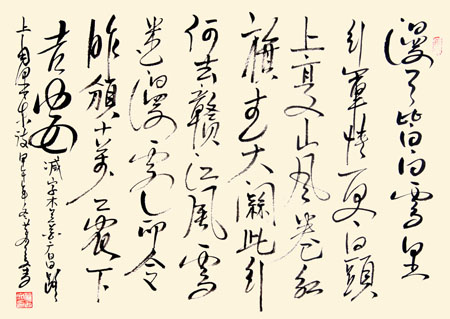 漫天皆白雪里
行軍情更迫頭
上高山風卷紅
旗過大關此行
何去贛江風雪
迷漫處命令
昨頒十萬工農下
吉安 减字木兰花廣昌路
上